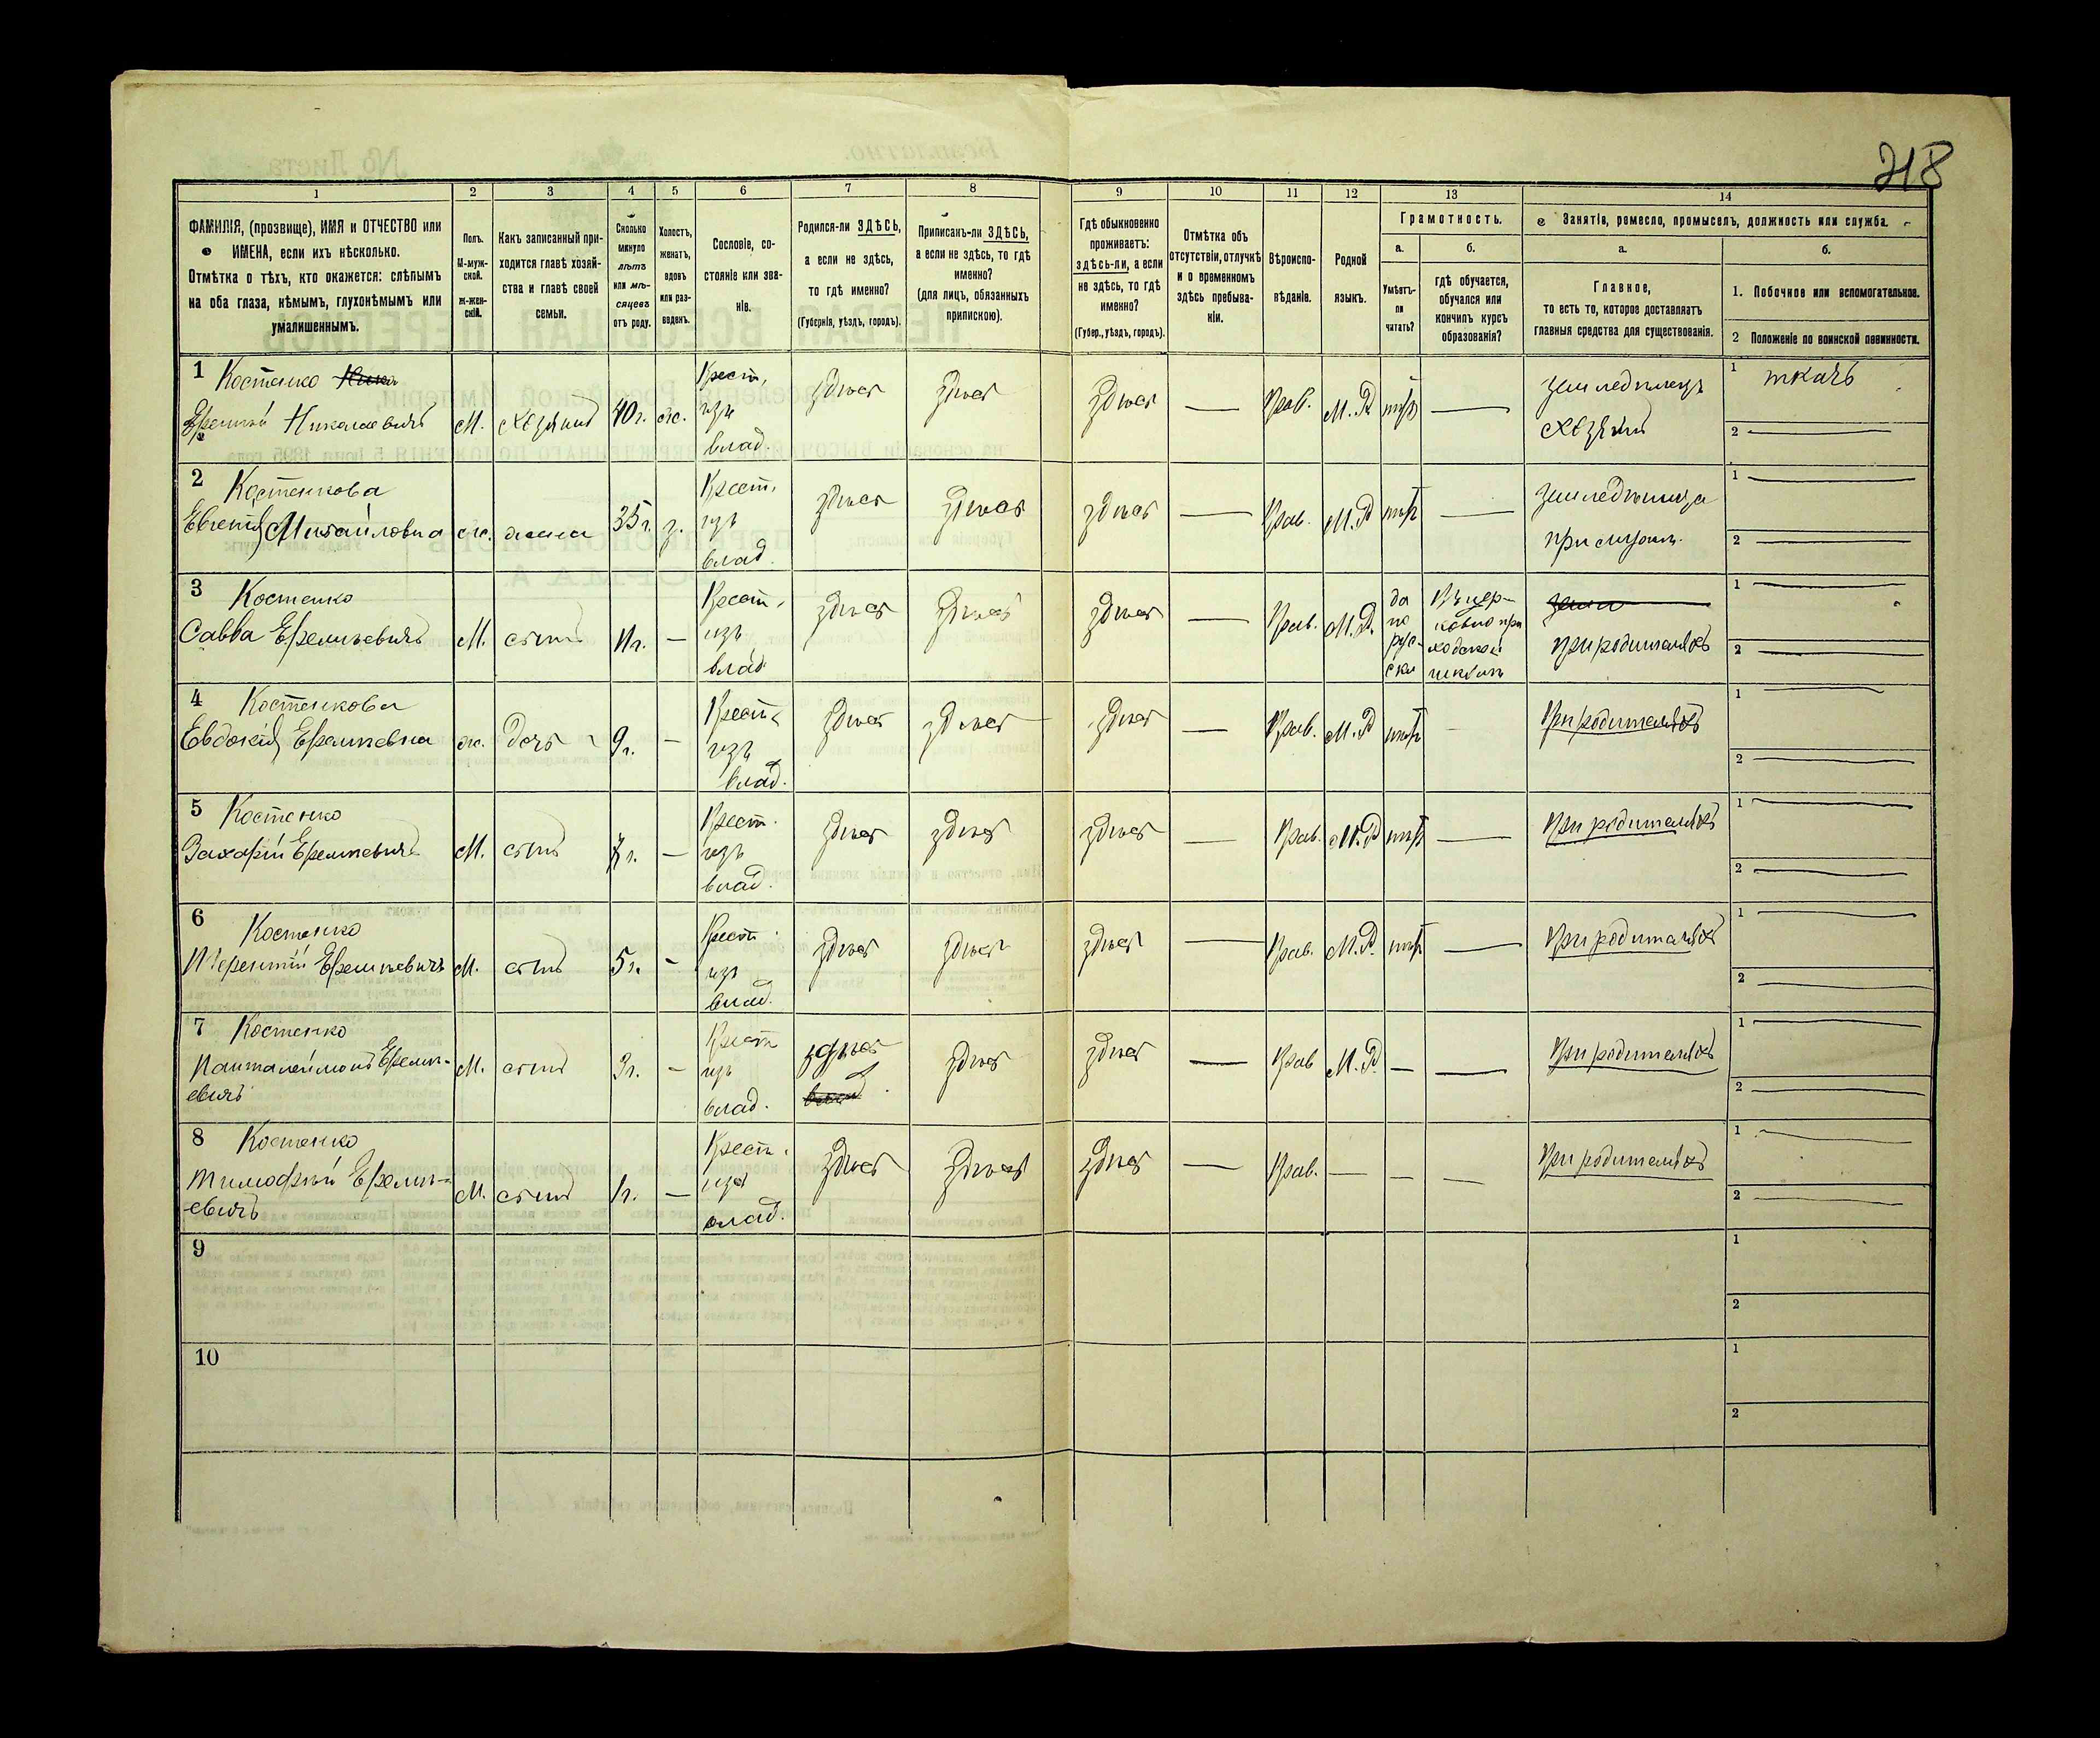 218
1 2 3 4 5 6 7 8 9 10 11 12 13 14
ФАМИЛІЯ, (прозвище), ИМЯ и ОТЧЕСТВО или
ИМЕНА, если ихъ нѣсколько.
Отмѣтка о тѣхъ, кто окажется: слѣпымъ
на оба глаза, нѣмымъ, глухонѣмымъ или
умалишеннымъ.
Полъ.
М-муж-
ской.
Ж-жен-
скій.
Какъ записанный при-
ходится главѣ хозяй-
ства и главѣ своей
семьи.
Сколько
минуло
лѣтъ
или мѣ-
сяцевъ
отъ роду.
Холостъ,
женатъ,
вдовъ
или раз-
веденъ.
Сословіе, со-
стояніе или зва-
ніе.
Родился-ли ЗДѢСЬ,
а если не здѣсь,
то гдѣ именно?
(Губернія, уѣздъ, городъ).
Приписанъ-ли ЗДѢСЬ,
а если не здѣсь, то гдѣ
именно?
(для лицъ, обязанныхъ
припискою).
Гдѣ обыкновенно
проживаетъ:
здѣсь-ли, а если
не здѣсь, то гдѣ
именно?
(Губер., уѣздъ, городъ).
Отмѣтка объ
отсутствіи, отлучкѣ
и о временномъ
здѣсь пребыва-
ніи.
Вѣроиспо-
вѣданіе.
Родной
языкъ.
Грамотность.
а.
Умѣетъ-
ли
читать?
б.
гдѣ обучается,
обучался или
кончилъ курсъ
образованія?
Занятія, ремесло, промыселъ, должность или служба.
а.
Главное,
то есть то, которое доставляетъ
главныя средства для существованія.
б.
1. Побочное или вспомогательное.
2 Положеніе по воинской повинности.
1 Костенко
Еремѣй Николаевичъ М. хозяинъ 40 г. ж. Крест. изъ влад. здѣсь здѣсь здѣсь — Прав. М. Р. нѣтъ — земледѣлецъ хозяинъ 1 ткачъ
2 —
2 Костенкова
Евгенія Михайловна ж. жена 35 г. з. Крест. изъ влад. здѣсь здѣсь здѣсь — Прав. М. Р нѣтъ — 1 —
2 —
3 Костенко
Савва Еремѣевичъ М. сынъ 11 г. — Крест. изъ влад здѣсь здѣсь здѣсь — Прав. М. Р. да по рус-ски Въ цер-ковно при-ходской школѣ при родителяхъ 1 —
2 —
4 Костенкова
Евдокія Еремѣевна ж. дочь 9 г. — Крест. изъ влад. здѣсь здѣсь здѣсь — Прав. М. Р нѣтъ При родителяхъ 1 —
2 —
5 Костенко
Захарій Еремѣевичъ М. сынъ — Крест. изъ влад. здѣсь здѣсь здѣсь — Прав. М. Р нѣтъ — При родителяхъ 1 —
2 —
6 Костенко
Терентій Еремѣевичъ М. сынъ 5 г. - Крест. изъ влад. здѣсь здѣсь здѣсь — Прав. М. Р. нѣтъ — При родителяхъ 1 —
2 —
7 Костенко
Панталеймонъ Еремѣ-
евичъ М. сынъ 3 г. - Крест изъ влад. здѣсь здѣсь здѣсь — Прав М. Р. — — При родителяхъ 1 —
2 —
8 Костенко
Тимофѣй Еремѣ-
евичъ М. сынъ 1 г. — Крест. изъ влад. здѣсь здѣсь здѣсь — Прав. — — — При родителяхъ 1 —
2 —
9 1
2
10 1
2